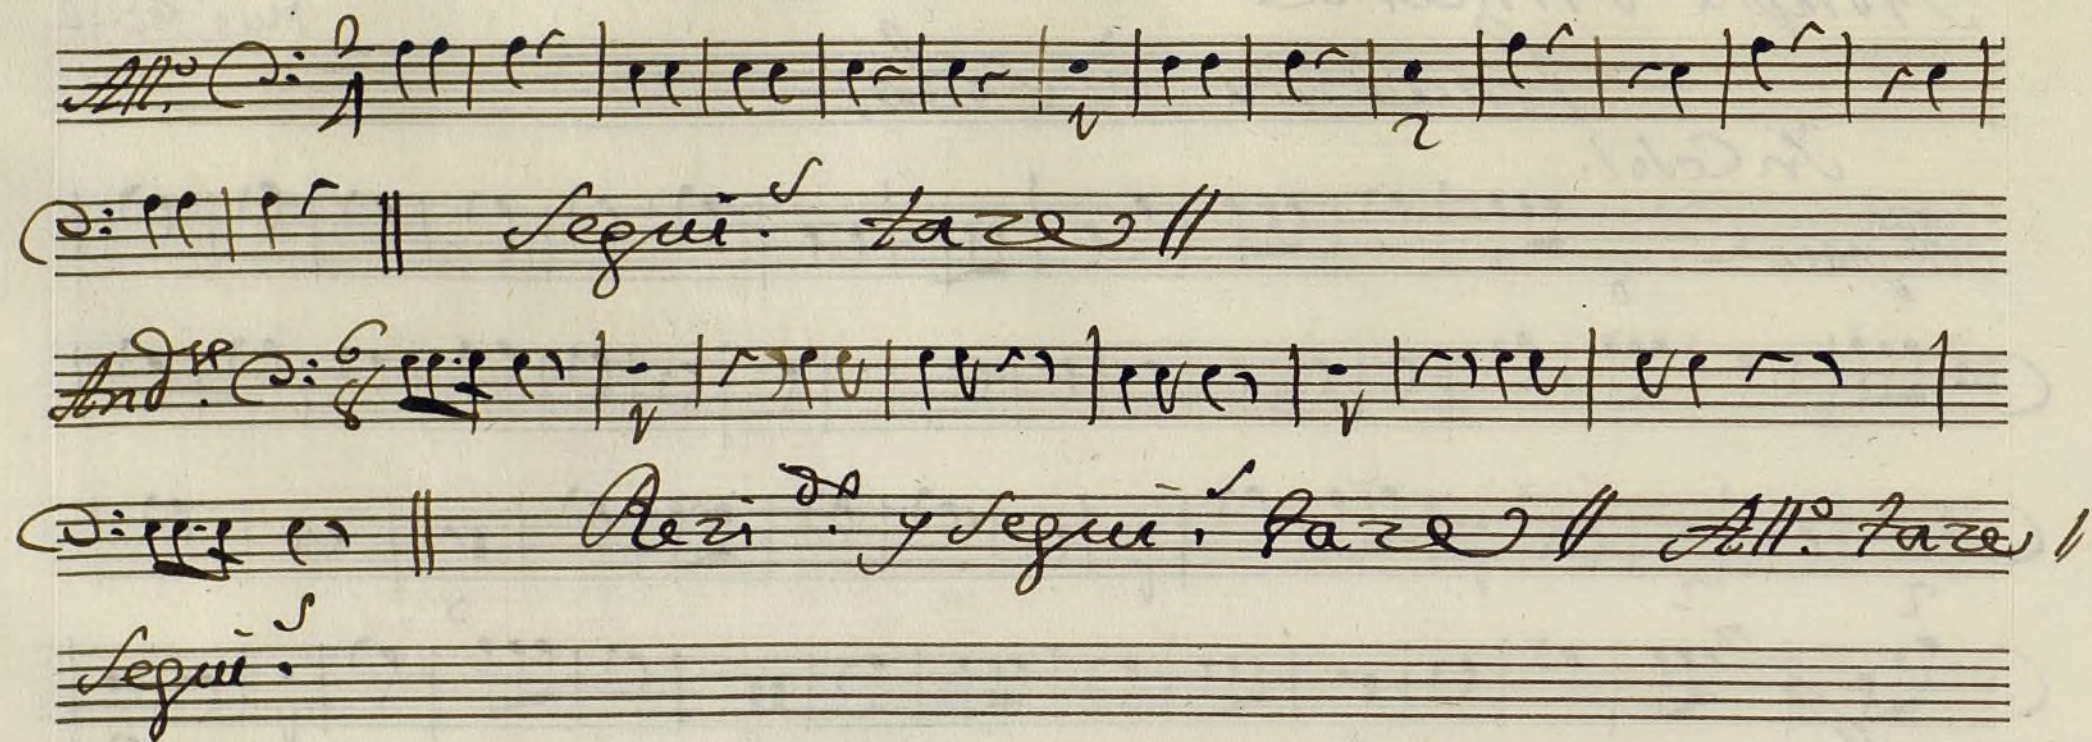 All.º 2/4
Segui.s taze //
And.te 6/8
Rezi.do y Segui.s taze // All.º taze //
Segui.s